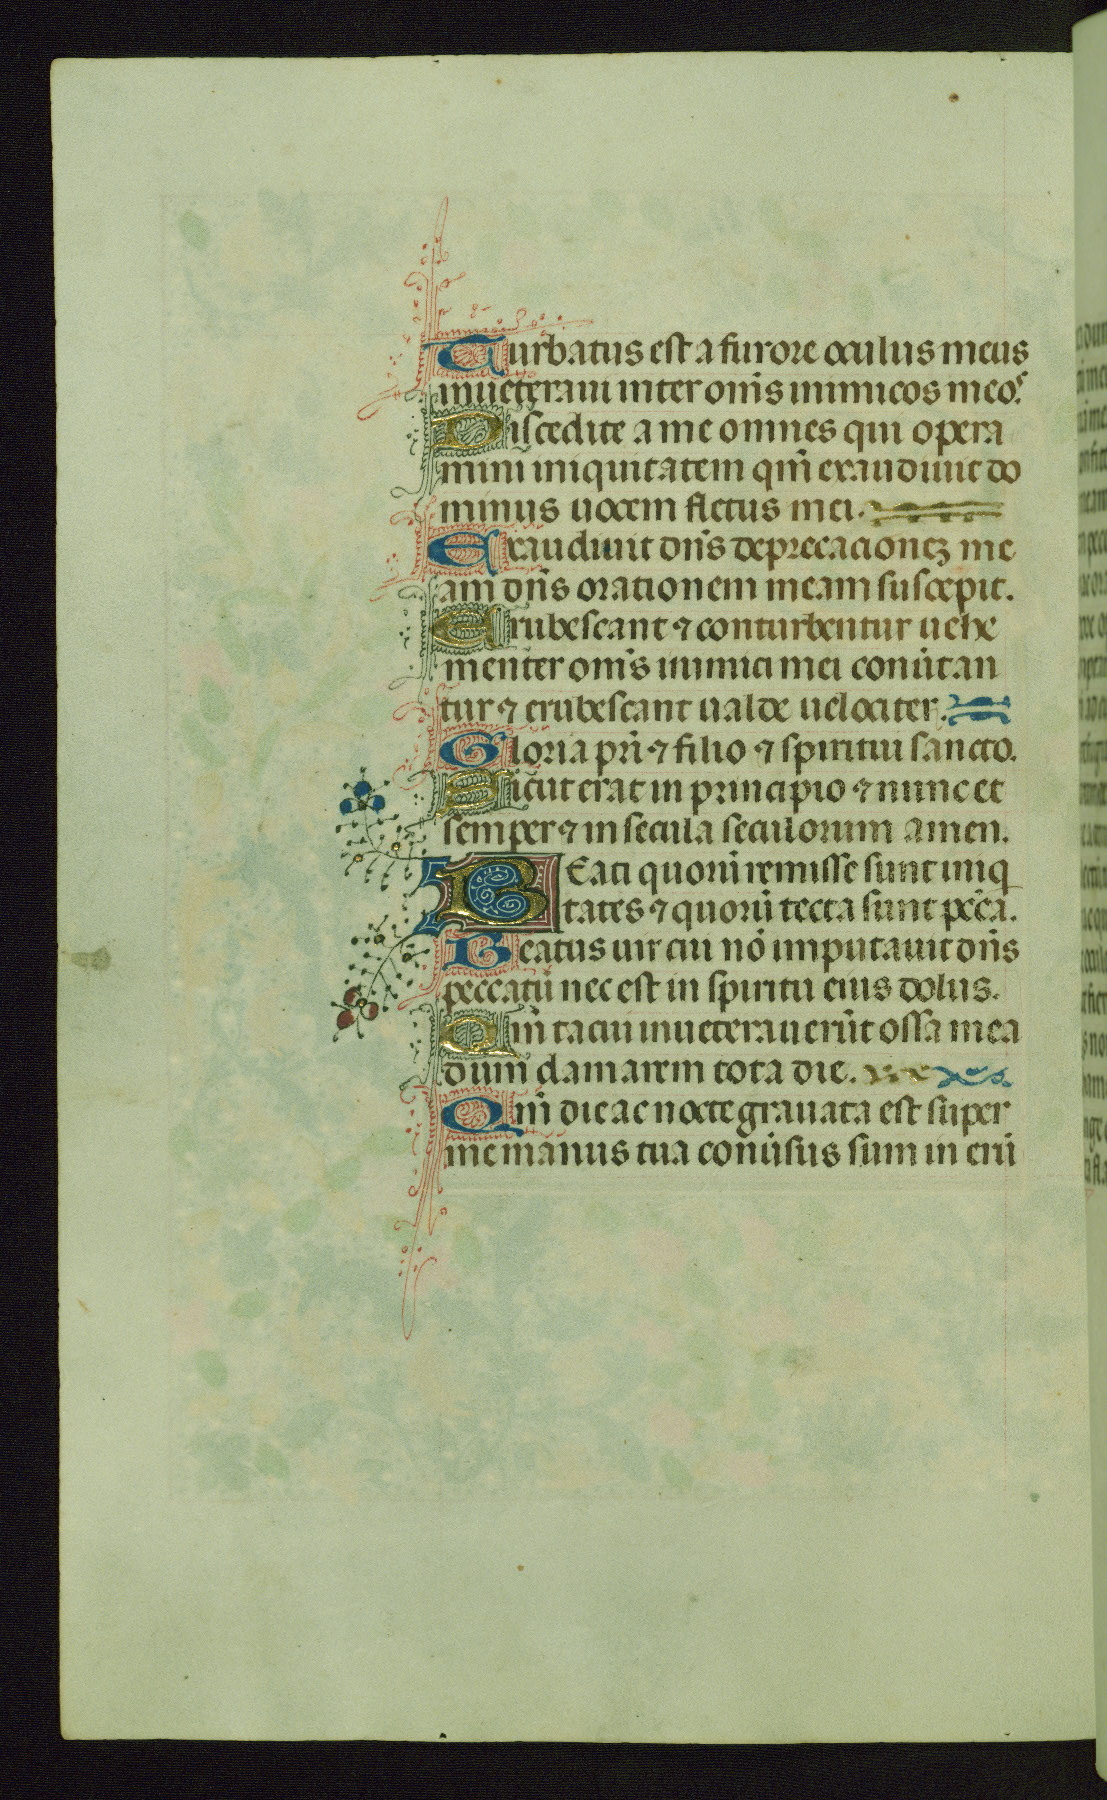 Turbatus est a furore oculus meus
inueteraui inter om̄s inimicos meos
Discedite a me omnes qui opera
mini iniquitatem qm̄ exaudiuit do
minus uocem fletus mei.
Exaudiuit dn̄s deprecacioneꝫ me
am dn̄s orationem meam suscepit.
Erubescant ⁊ conturbentur uehe
menter om̄s inimici mei conūtan
tur ⁊ erubescant ualde uelociter.
Gloria pr̄i ⁊ filio ⁊ spiritui sancto.
Sicut erat in principio ⁊ nunc et
semper ⁊ in secula seculorum amen.
BEati quorū remisse sunt iniq
tates ⁊ quorū tecta sunt pec̄a.
Beatus uir cui nō imputauit dn̄s
peccatū nec est in spiritu eius dolus.
Qm̄ tacui inueterauerūt ossa mea
dum clamarem tota die.
Qm̄ die ac nocte grauata est super
me manus tua conūsus sum in erū